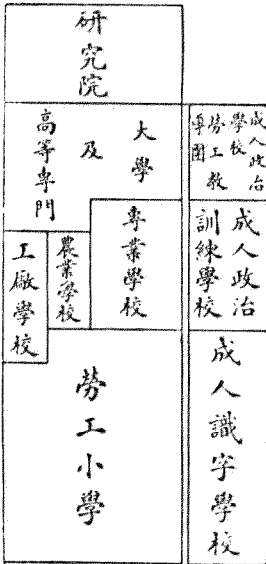 研究院
大學
及
高等專門
專業學校
農業學校
工廠學校
勞工小學
成人政治
學校
勞工教
成人政治
訓練學校
成人識字學校